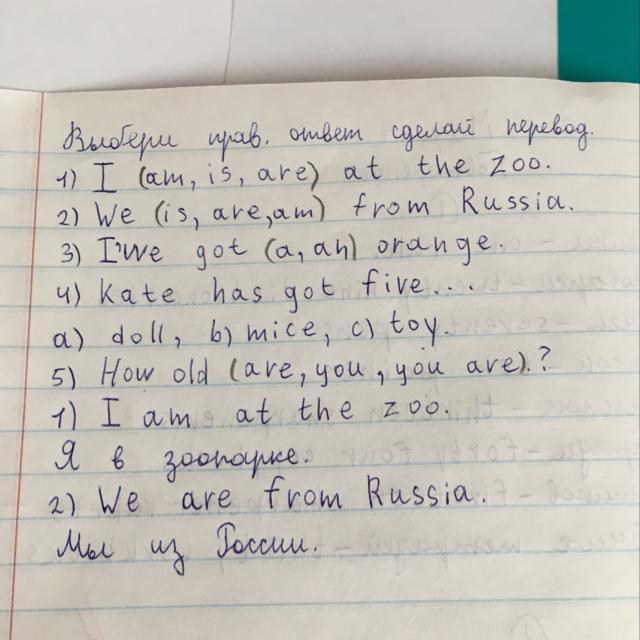 Выбери прав. ответ сделай перевод.
1) I (am, is, are) at the zoo.
2) We (is, are, am) from Russia.
3) I'we got (a, an) orange.
4) Kate has got five....
a) doll, b) mice, c) toy.
5) How old (are, you, you are).?
1) I am at the zoo.
Я в зоопарке.
2) We are from Russia.
Мы из России.